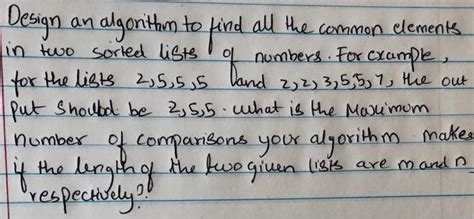 Design an algorithm to find all the common elements
in two sorted lists of numbers. For example,
for the lists 2,5,5,5 and 2,2,3,5,5,7, the out
put should be 2,5,5. what is the Maximum
number of comparisons your algorithm makes
if the length of the two given lists are m and n
respectively?